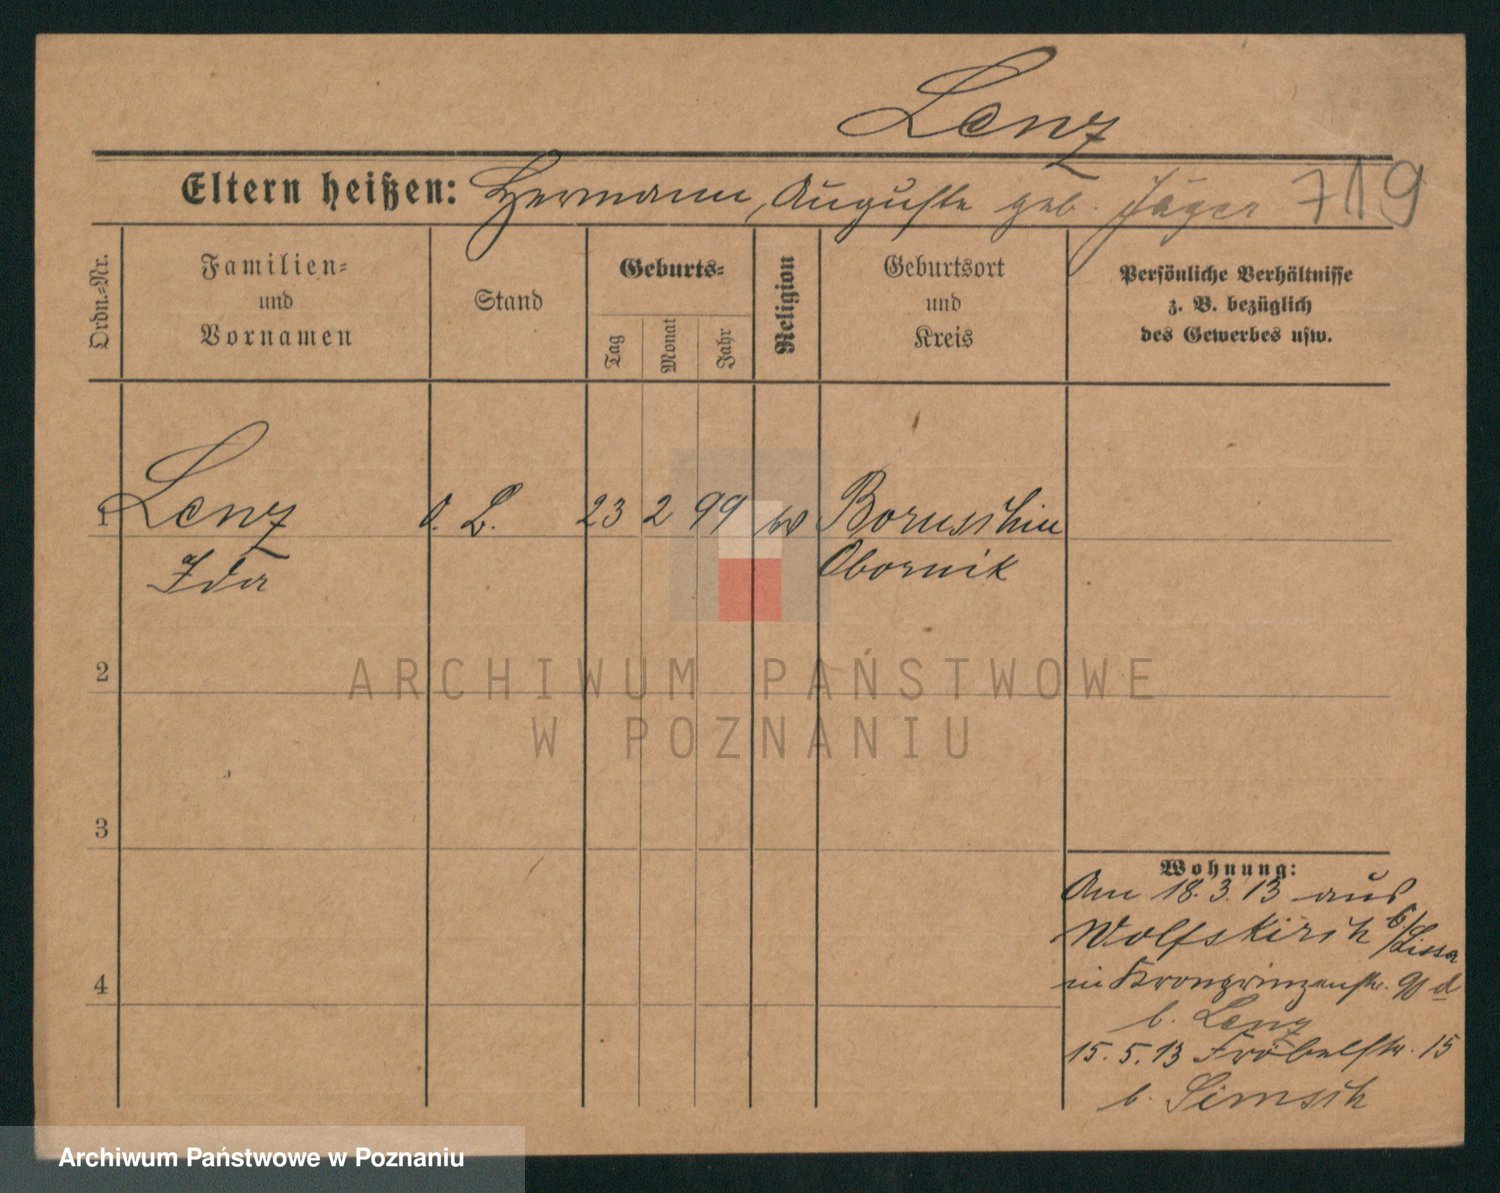 Lenz
Eltern heißen: Hermann, Auguste geb. Jäger 719
Ordn.-Nr.
Familien-
und
Vornamen
Stand
Geburts-
Tag
Monat
Jahr
Religion
Geburtsort
und
Kreis
Persönliche Verhältnisse
z. B. bezüglich
des Gewerbes usw.
1 Lenz o. B. 23 2 99 Boruschin
Ida Obornik
2
ARCHIWUM PAŃSTWOWE
W POZNANIU
3
Wohnung:
Am 18.3.13 aus
Wolfskirch b/Lissa
in Kronprinzenstr. d
4
b. Lenz
15.5.13 Fröbelstr. 15
b.
Archiwum Państwowe w Poznaniu